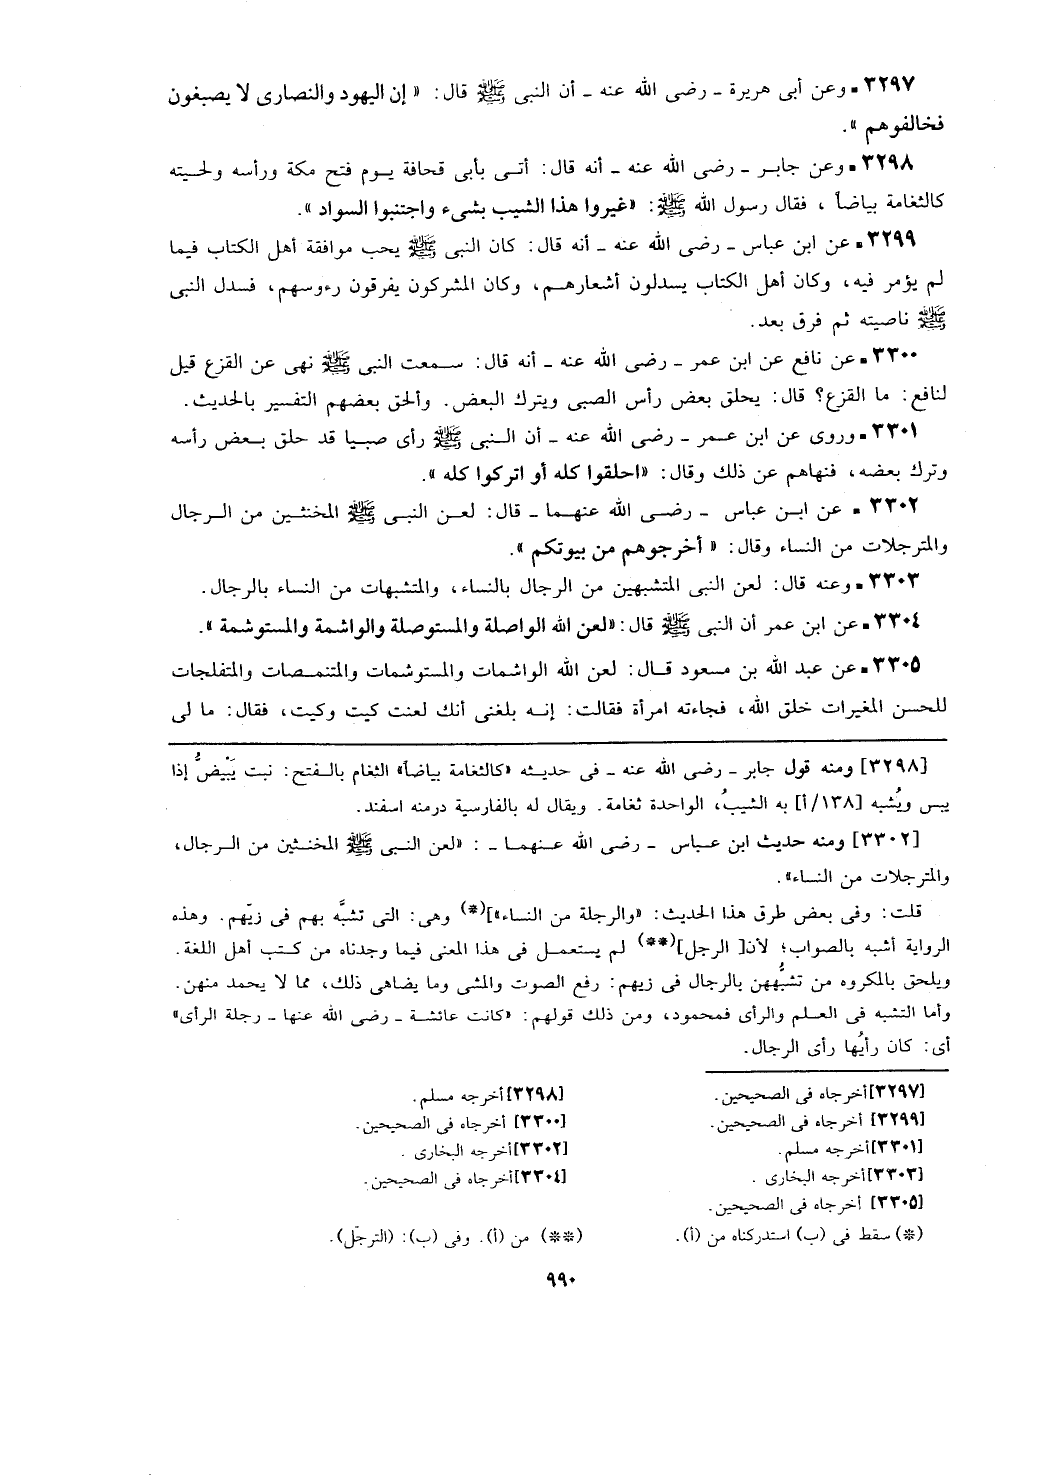 ٣٢٩٧ـ وعن أبى هريرة ـ رضى الله عنه ـ أن النبى ﷺ قال: « إن اليهود والنصارى لا يصبغون
فخالفوهم ».
٣٢٩٨ـ وعن جابـر ـ رضى الله عنه ـ أنه قال: أتـى بأبى قحافة يـوم فتح مكة ورأسه ولحيته
كالثغامة بياضاً ، فقال رسول الله ﷺ: «غيروا هذا الشيب بشىء واجتنبوا السواد ».
٣٢٩٩ـ عن ابن عباس ـ رضى الله عنه ـ أنه قال: كان النبى ﷺ يحب موافقة أهل الكتاب فيما
لم يؤمر فيه، وكان أهل الكتاب يسدلون أشعارهـم، وكان المشركون يفرقون رءوسهم، فسدل النبى
ﷺ ناصيته ثم فرق بعد.
٣٣٠٠ـ عن نافع عن ابن عمر ـ رضى الله عنه ـ أنه قال: سـمعت النبى ﷺ نهى عن القزع قيل
لنافع: ما القزع؟ قال: يحلق بعض رأس الصبى ويترك البعض. وألحق بعضهم التفسير بالحديث.
٣٣٠١ـ وروى عن ابن عـمر ـ رضى الله عنه ـ أن الـنبى ﷺ رأى صبـيا قد حلق بـعض رأسه
وترك بعضه، فنهاهم عن ذلك وقال: «احلقوا كله أو اتركوا كله ».
٣٣٠٢ـ عن ابـن عباس ـ رضـى الله عنهـما ـ قال: لعـن النبـى ﷺ المخنثـين من الـرجال
والمترجلات من النساء وقال: « أخرجوهم من بيوتكم ».
٣٣٠٣ـ وعنه قال: لعن النبى المتشبهين من الرجال بالنساء، والمتشبهات من النساء بالرجال.
٣٣٠٤ـ عن ابن عمر أن النبى ﷺ قال:«لعن الله الواصلة والمستوصلة والواشمة والمستوشمة ».
٣٣٠٥ـ عن عبد الله بن مسعود قـال: لعن الله الواشمات والمستوشمات والمتنمـصات والمتفلجات
للحسن المغيرات خلق الله، فجاءته امرأة فقالت: إنـه بلغنى أنك لعنت كيت وكيت، فقال: ما لى
[٣٢٩٨] ومنه قول جابر ـ رضى الله عنه ـ فى حديـثه «كالثغامة بياضاً» الثغام بالـفتح: نبت يَبْيَضُّ إذا
يبس ويُشبه [١٣٨/أ] به الشيبُ، الواحدة ثغامة. ويقال له بالفارسية درمنه اسفند.
[٣٣٠٢] ومنه حديث ابن عـباس ـ رضى الله عـنهمـا ـ : «لعن النـبى ﷺ المخنـثين من الـرجال،
والمترجلات من النساء».
قلت: وفى بعض طرق هذا الحديث: «والرجلة من النساء»](*) وهى: التى تشبَّه بهم فى زيّهم. وهذه
الرواية أشبه بالصواب؛ لأن[ الرجل](**) لم يستعمـل فى هذا المعنى فيما وجدناه من كـتب أهل اللغة.
ويلحق بالمكروه من تشبُّههن بالرجال فى زيهم: رفع الصوت والمشى وما يضاهى ذلك، مما لا يحمد منهن.
وأما التشبه فى العـلم والرأى فمحمود، ومن ذلك قولهم: «كانت عائشـة ـ رضى الله عنها ـ رجلة الرأى»
أى: كان رأيُها رأى الرجال.
[٣٢٩٧]أخرجاه فى الصحيحين.
[٣٢٩٨]أخرجه مسلم.
[٣٢٩٩] أخرجاه فى الصحيحين.
[٣٣٠٠] أخرجاه فى الصحيحين.
[٣٣٠١]أخرجه مسلم.
[٣٣٠٢]أخرجه البخارى .
[٣٣٠٣]أخرجه البخارى .
[٣٣٠٤]أخرجاه فى الصحيحين.
[٣٣٠٥] أخرجاه فى الصحيحين.
(*) سقط فى (ب) استدركناه من (أ).
(**) من (أ). وفى (ب): (الترجّل).
٩٩٠